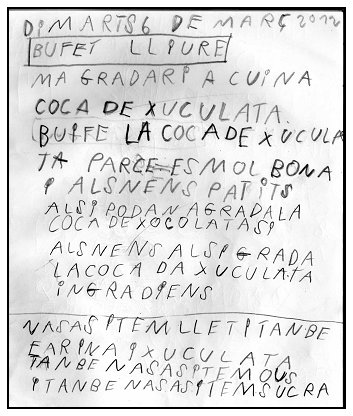 DIMARTS 6 DE MARÇ 2012
BUFET LLIURE
MA GRADARI A CUINA
COCA DE XUCULATA.
BUFFE LA COCA DE XUCULA
TA PARCE ES MOL BONA
I ALSNENS PATITS
ALSI PODAN AGRADALA
COCA DE XOCOLATA SI
ALSNENS ALSI GRADA
LA COCA DA XUCULATA
INGRADIENS
NASASITEM LLET I TANBE
FARINA I XUCULATA
TANBE NASASITEM OUS
I TANBE NASASITEM SUCRA